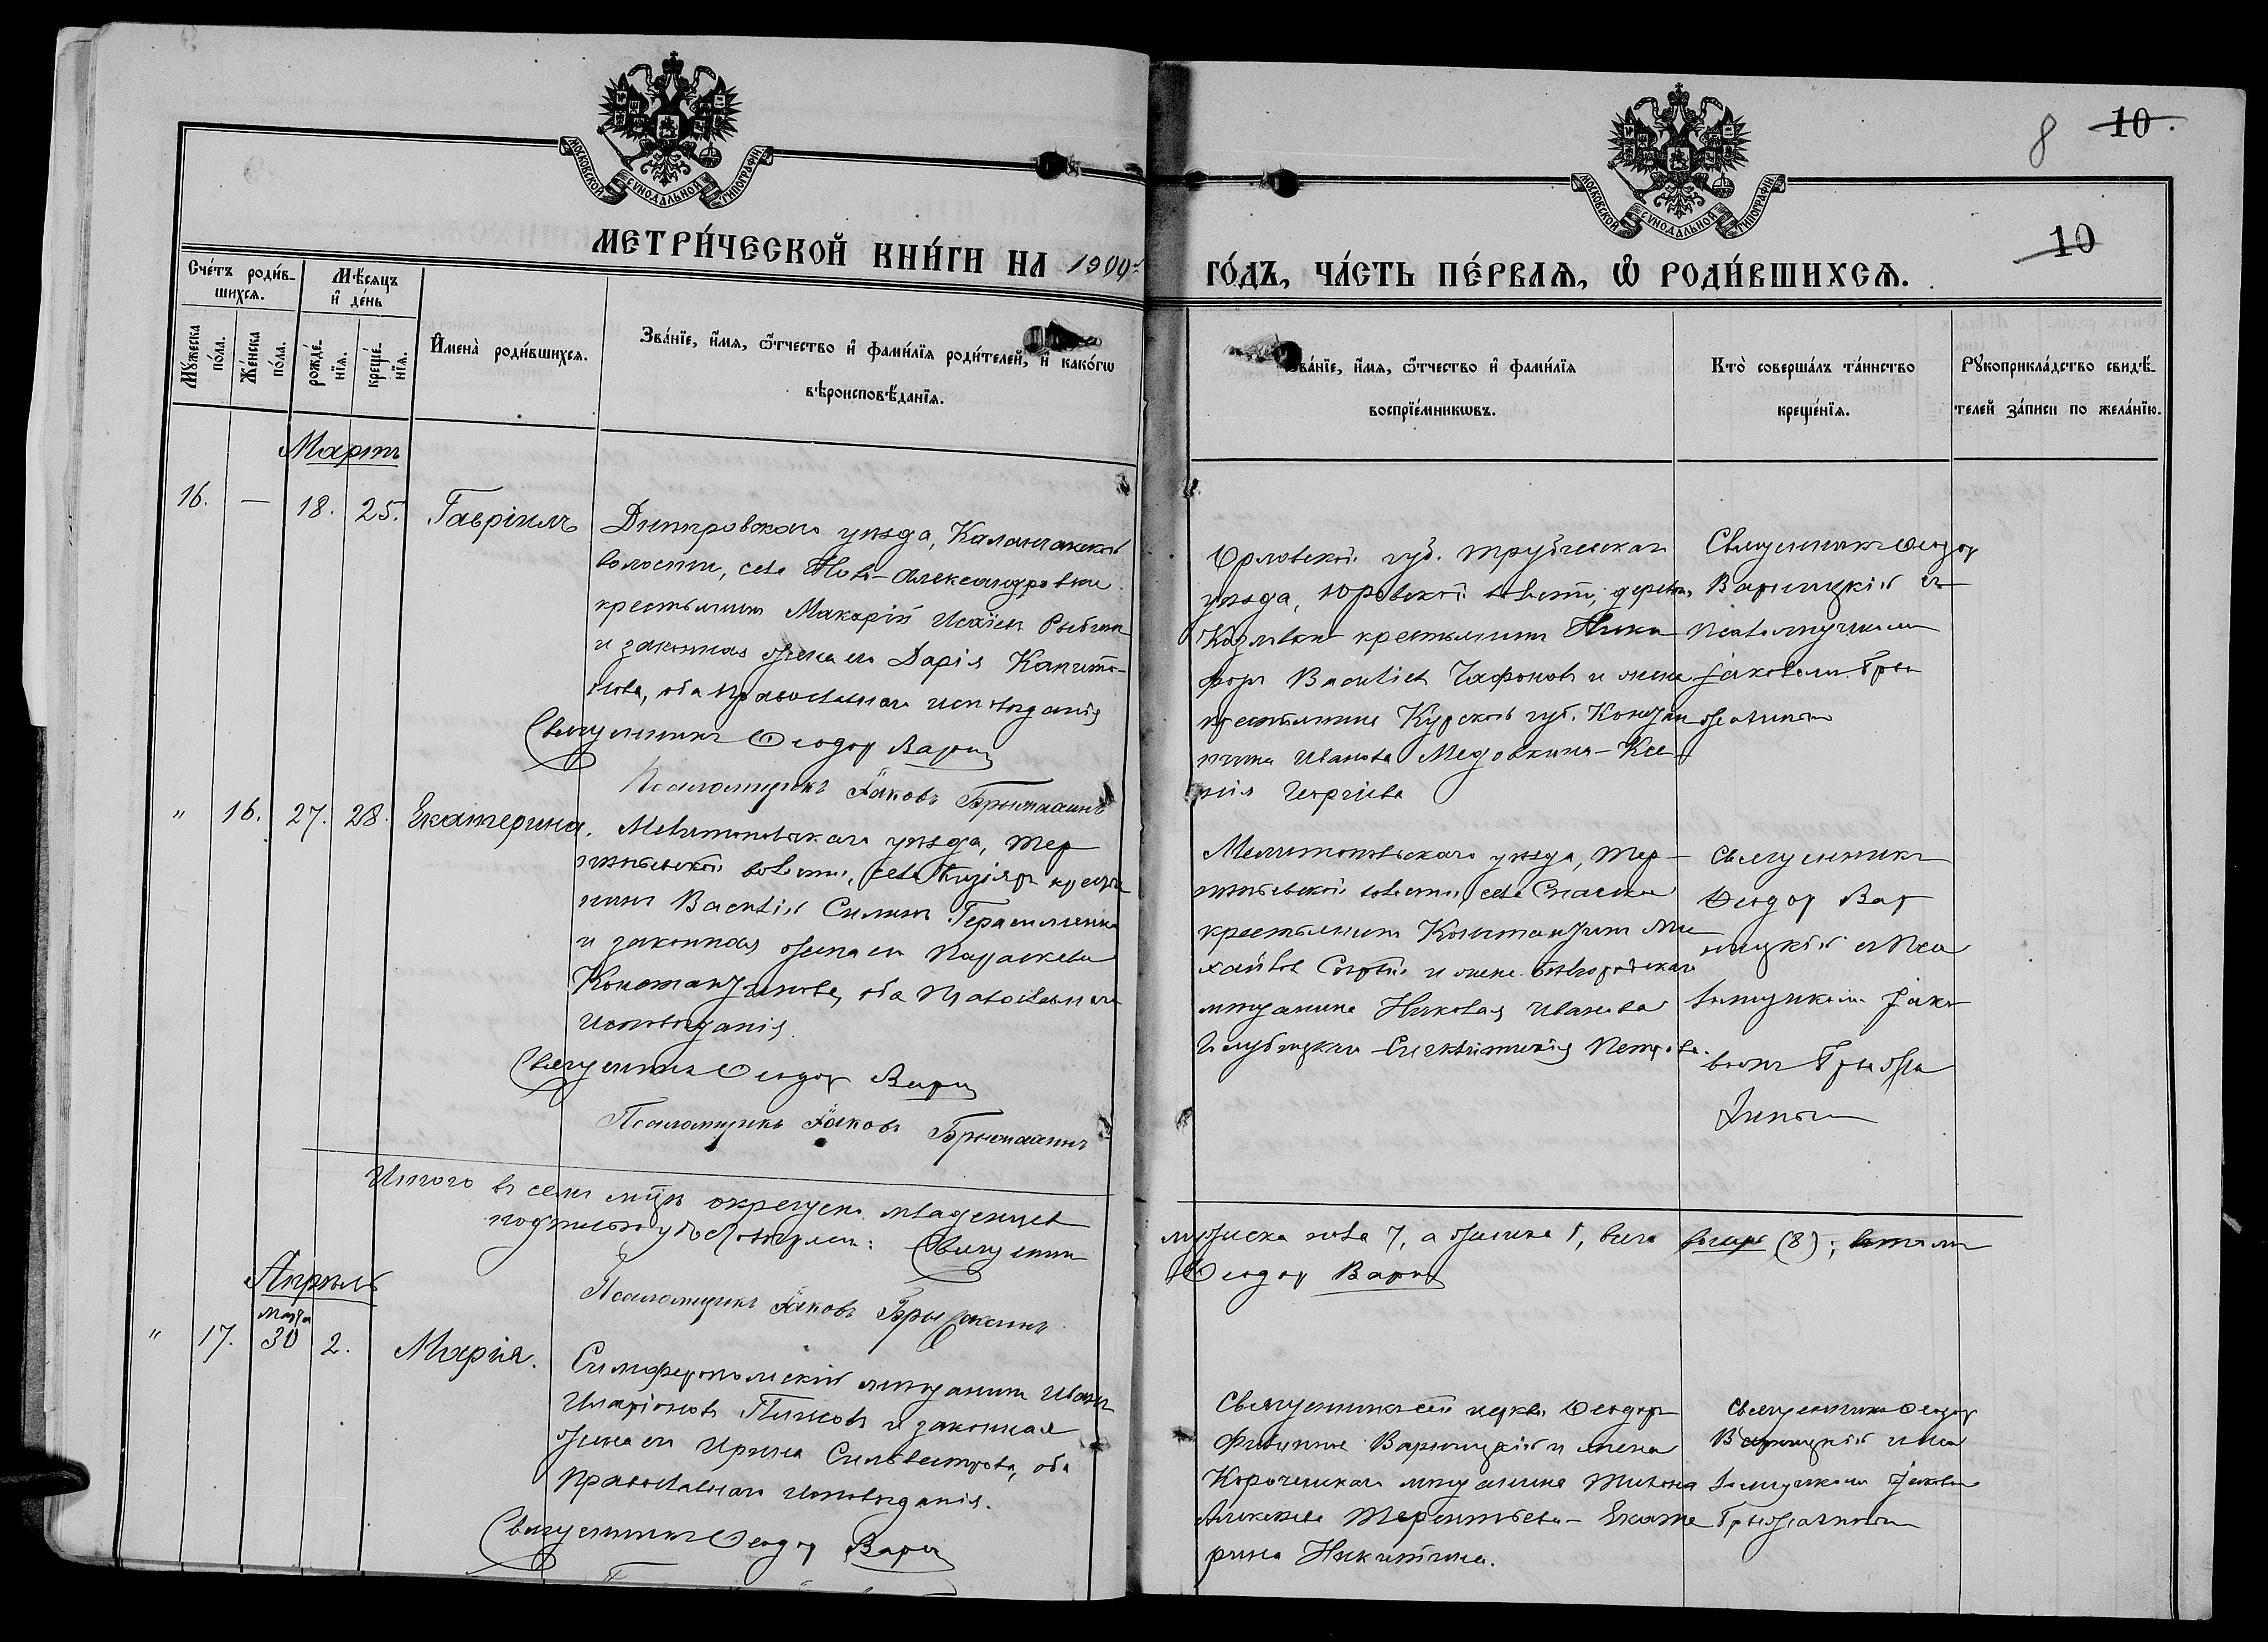 8 10
10
МОСКОВСКОЙ СѴНОДАЛЬНОЙ ТИПОГРАФІИ
МОСКОВСКОЙ СѴНОДАЛЬНОЙ ТИПОГРАФІИ
МЕТРИ́ЧЕСКОЙ КНИ́ГИ НА 1909 г.
ГО́ДЪ, ЧА́СТЬ ПЕ́РВАѦ, Ѽ РОДИ́ВШИХСѦ.
Сче́тъ роди́в-
шихсѧ.
Мѣ́сѧцъ
и҆ де́нь
Мꙋ́жеска по́ла.
Же́нска по́ла.
рожде́-
нїѧ.
креще́-
нїѧ.
И҆мена̀ роди́вшихсѧ.
Зва́нїе, и҆́мѧ, ѻ҆́тчество и҆ фами́лїѧ роди́телей, и҆ како́гѡ
вѣроисповѣ́данїѧ.
Зва́нїе, и҆́мѧ, ѻ҆́тчество и҆ фами́лїѧ
воспрїе́мникѡвъ.
Кто̀ соверша́лъ та́инство
креще́нїѧ.
Рꙋкоприкла́дство свидѣ́-
телей за́писи по жела́нїю.
Мартъ
16. — 18. 25. Гавріилъ
Днѣпровскаго уѣзда, Каланчакской
волости, села Ново-Александровки
крестьянинъ Макарій Исаіевъ
и законная жена его Дарія Капито-
нова, оба православнаго исповѣданія
Священникъ Ѳеодоръ Варниц
Псаломщикъ Іаковъ
Орловской губ. Трубчевскаго
уѣзда, Юровской волости, деревни
крестьянинъ Ники-
форъ Васильевъ и жена
крестьянина Курской губ. Констан
тина Иванова Медовкина - Ксе-
нія Георгіева
Священникъ Ѳеодоръ
Варницкій съ
псаломщикомъ
Іаковомъ
" 16. 27. 28. Екатерина.
Мелитопольскаго уѣзда, Тер
пѣньевской волости, села Кизіяръ крестья
нинъ Василій Силинъ Герасименко
и законная жена его Параскева
Константинова, оба православнаго
исповѣданія.
Священникъ Ѳеодоръ Варниц
Псаломщикъ Іаковъ
Мелитопольскаго уѣзда, Тер-
пѣньевской волости села
крестьянинъ Константинъ Ми
хайловъ и жена
мѣщанина Николая Иванова
Голубицкаго - Синклитикія Петрова.
Священникъ
Ѳеодоръ Вар
ницкій съ пса
ломщикомъ Іако
вомъ
Итого въ семъ мѣсяцѣ окрещено младенцев
мужеска пола 7, а женска 1, всего восемь (8);
Священник
Ѳеодоръ Варниц
Псаломщикъ Іаковъ
Апрѣль
Марта
" 17. 30 2. Марія.
Симферопольскій мѣщанинъ Иванъ
Иларіоновъ и законная
жена его Ирина Сильвестрова, оба
православнаго исповѣданія.
Священникъ Ѳеодоръ Варниц
Священникъ сей церкви Ѳеодоръ
Филиповъ Варницкій и жена
Корочанскаго мѣщанина Тихона
Алексѣева Терентьева - Екате
рина Никитина.
Священникъ Ѳеодоръ
Варницкій и пса
ломщикомъ Іаковом